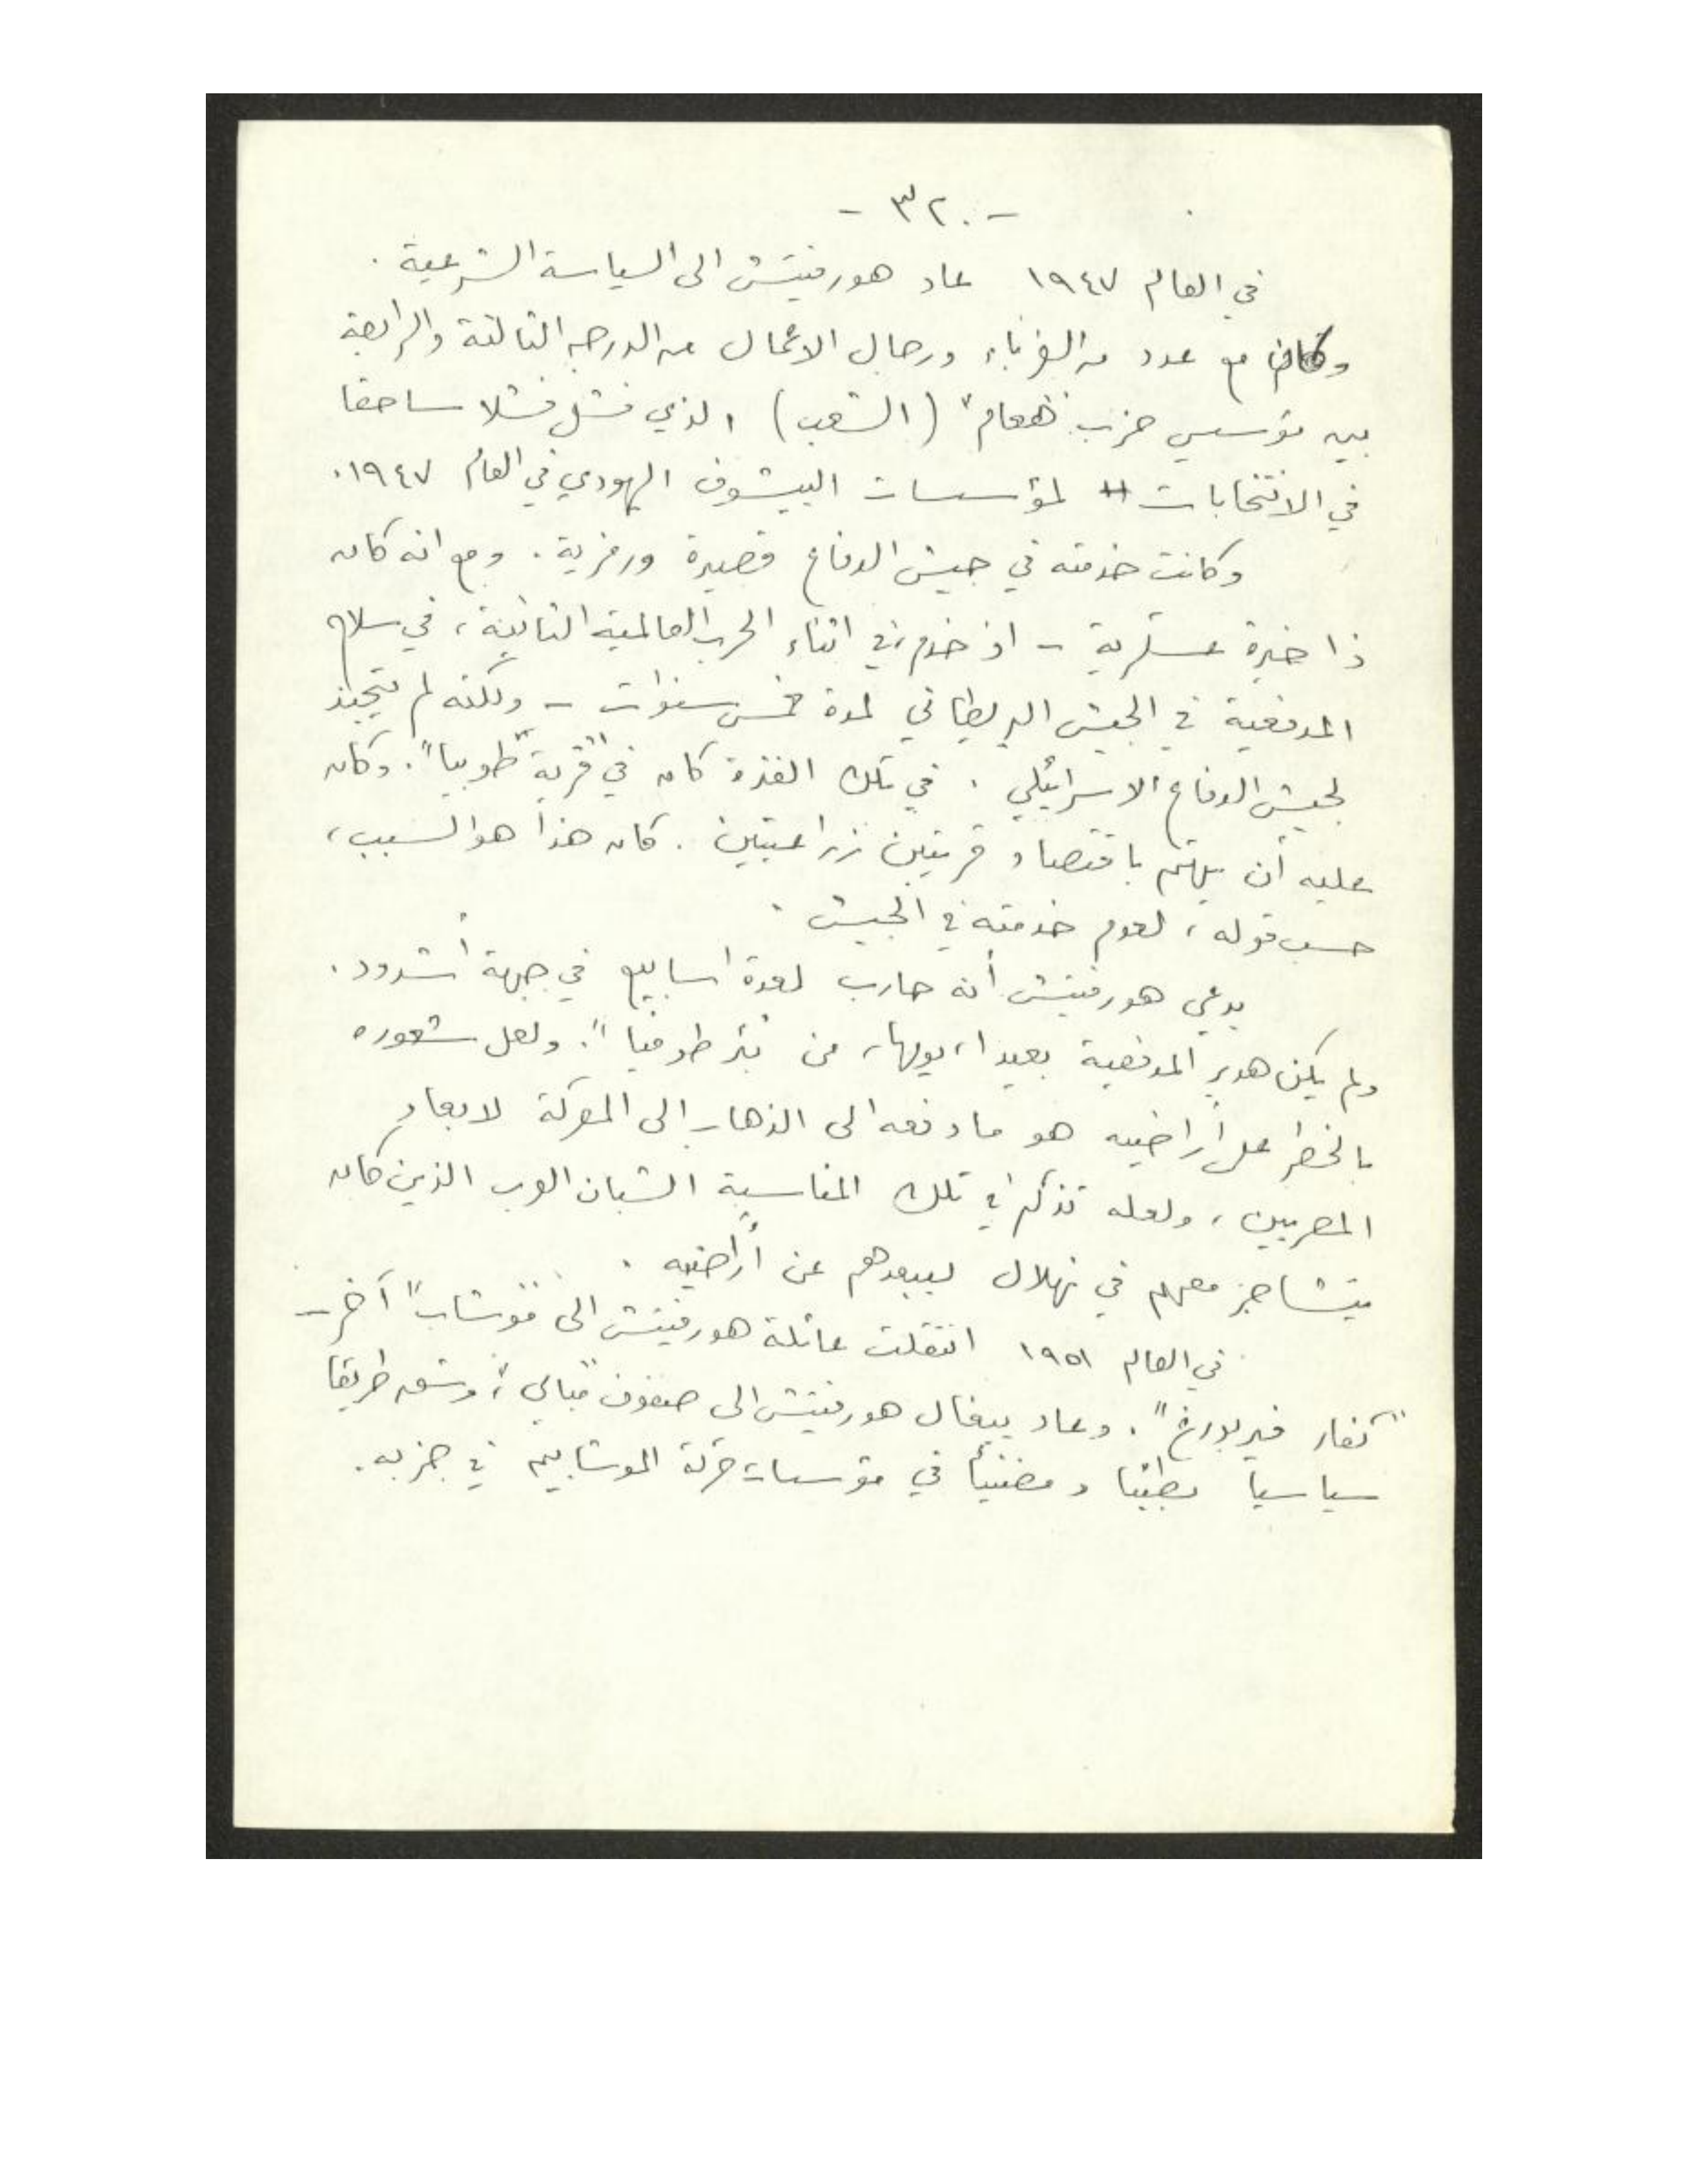 - ٣٢٠ -
في العام ١٩٤٧ عاد هورفيتش الى السياسة الشرعية .
وكان مع عدد من الغرباء ورجال الاعمال من الدرجة الثالثة والرابعة
بين مؤسسي حزب "هعام" (الشعب) الذي فشل فشلا ساحقا
في الانتخابات لمؤسسات الييشوف اليهودي في العام ١٩٤٧.
وكانت خدمته في جيش الدفاع قصيرة ورمزية . ومع انه كان
ذا خبرة عسكرية - اذ خدم، في اثناء الحرب العالمية الثانية، في سلاح
المدفعية في الجيش البريطاني لمدة خمس سنوات - ولكنه لم يتجند
لجيش الدفاع الاسرائيلي . في تلك الفترة كان في قرية "طوبيا". وكان
عليه أن يهتم باقتصاد قريتين زراعيتين . كان هذا هو السبب،
حسب قوله، لعدم خدمته في الجيش .
يدعي هورفيتش أنه حارب لعدة اسابيع في جبهة أشدود.
ولم يكن هدير المدفعية بعيدا، يومها، من "بئر طوفيا". ولعل شعوره
بالخطر على أراضيه هو ما دفعه الى الذهاب الى المعركة لابعاد
المصريين، ولعله تذكر في تلك المناسبة الشبان العرب الذين كان
يتشاجر معهم في نهلال ليبعدهم عن أراضيه .
في العام ١٩٥١ انتقلت عائلة هورفيتش الى "موشاب" آخر -
"كفار فيربورغ". وعاد ييغال هورفيتش الى صفوف "مباي"، وشق طريقا
سياسيا بطيئا ومضنيأ في مؤسسات حركة الموشابيم في حزبه.